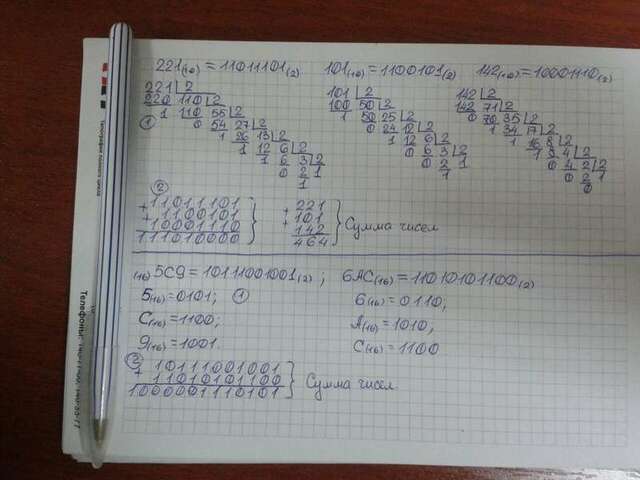 221(10) = 11011101(2)   101(10) = 1100101(2)   142(10) = 10001110(2)
221|2   101|2   142|2
220 110|2   100 50|2   142 71|2
1 110 55|2   1 50 25|2   0 70 35|2
① 0 54 27|2   0 24 12|2   1 34 17|2
1 26 13|2   1 12 6|2   1 16 8|2
1 12 6|2   0 6 3|2   1 8 4|2
1 6 3|2   0 2 1   0 4 2|2
0 2 1   1   0 2 1
1   0
②
+11011101   +221
+1100101   +101
10001110   142   Сумма чисел
111010000   464
(16) 5C9 = 10111001001(2) ;   6AC(16) = 11010101100(2)
5(16) = 0101;   ①   6(16) = 0110,
C(16) = 1100;   A(16) = 1010,
9(16) = 1001.   C(16) = 1100
②
+10111001001
11010101100   Сумма чисел.
1000001110101
Телефоны: